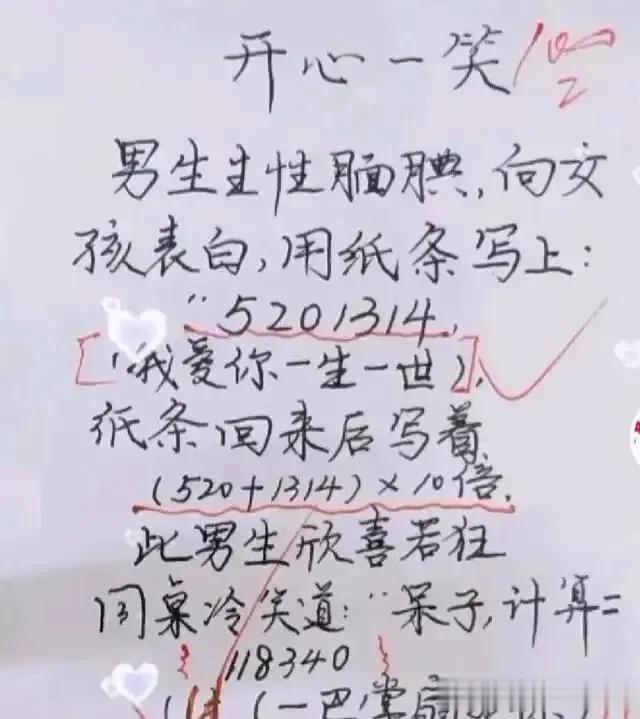 开心一笑 100
男生生性腼腆,向女
孩表白,用纸条写上:
"5201314,
(我爱你一生一世),
纸条回来后写着
(520+1314)×10倍,
此男生欣喜若狂
同桌冷笑道:"呆子,计算=
118340
(一巴掌扇